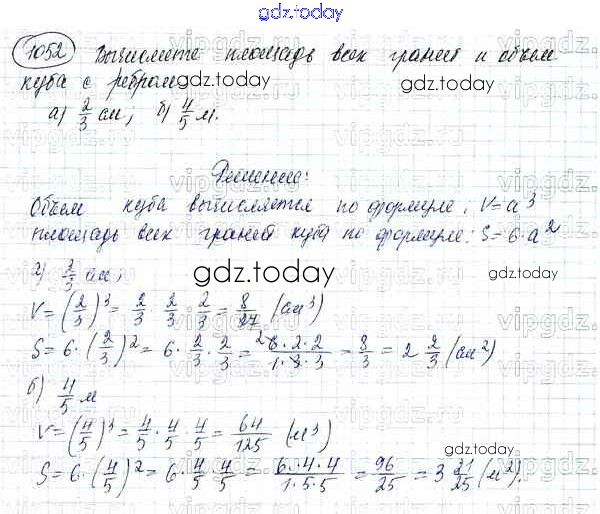 gdz.today
1052 Вычислите площадь всех граней и объем
куба с ребром gdz.today gdz.today
а) 2/3 см; б) 4/5 м.
Решение:
Объем куба вычисляется по формуле: V=a³
площадь всех граней куба по формуле: S=6·a²
а) 2/3 см;
gdz.today
V=(2/3)³= 2/3 2/3 2/3 = 8/27 (см³)
S=6·(2/3)²= 6·2/3·2/3= 6·2·2/1·3·3 = 8/3 = 2 2/3 (см²)
б) 4/5 м
V=(4/5)³= 4/5·4/5·4/5= 64/125 (м³)
gdz.today
S=6·(4/5)²= 6·4/5·4/5= 6·4·4/1·5·5 = 96/25 = 3 21/25 (м²).